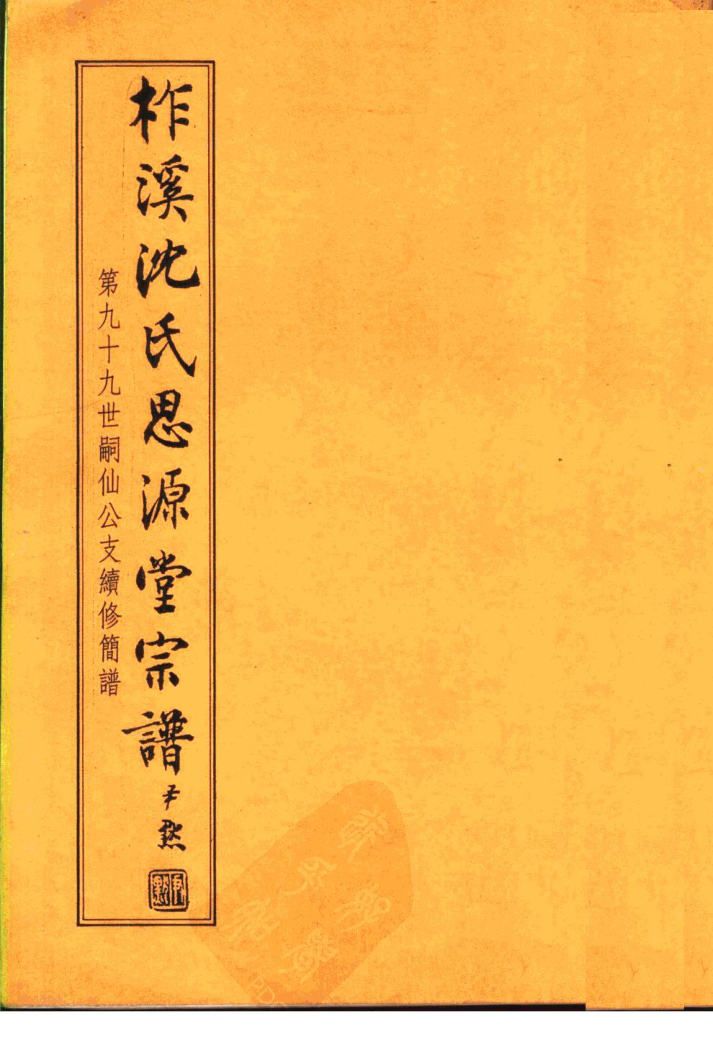 柞溪沈氏思源堂宗譜
尹默
第九十九世嗣仙公支續修簡譜